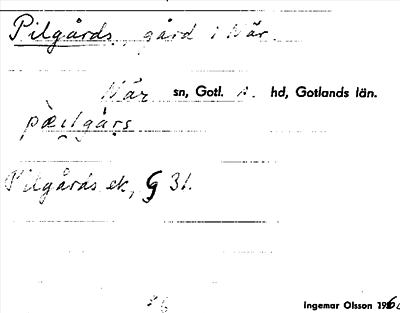 Pilgårds, gård i När.
När sn, Gotl. s. hd, Gotlands län.
pæilgàrs
Pilgårds ek, § 31.
Ingemar Olsson 1960